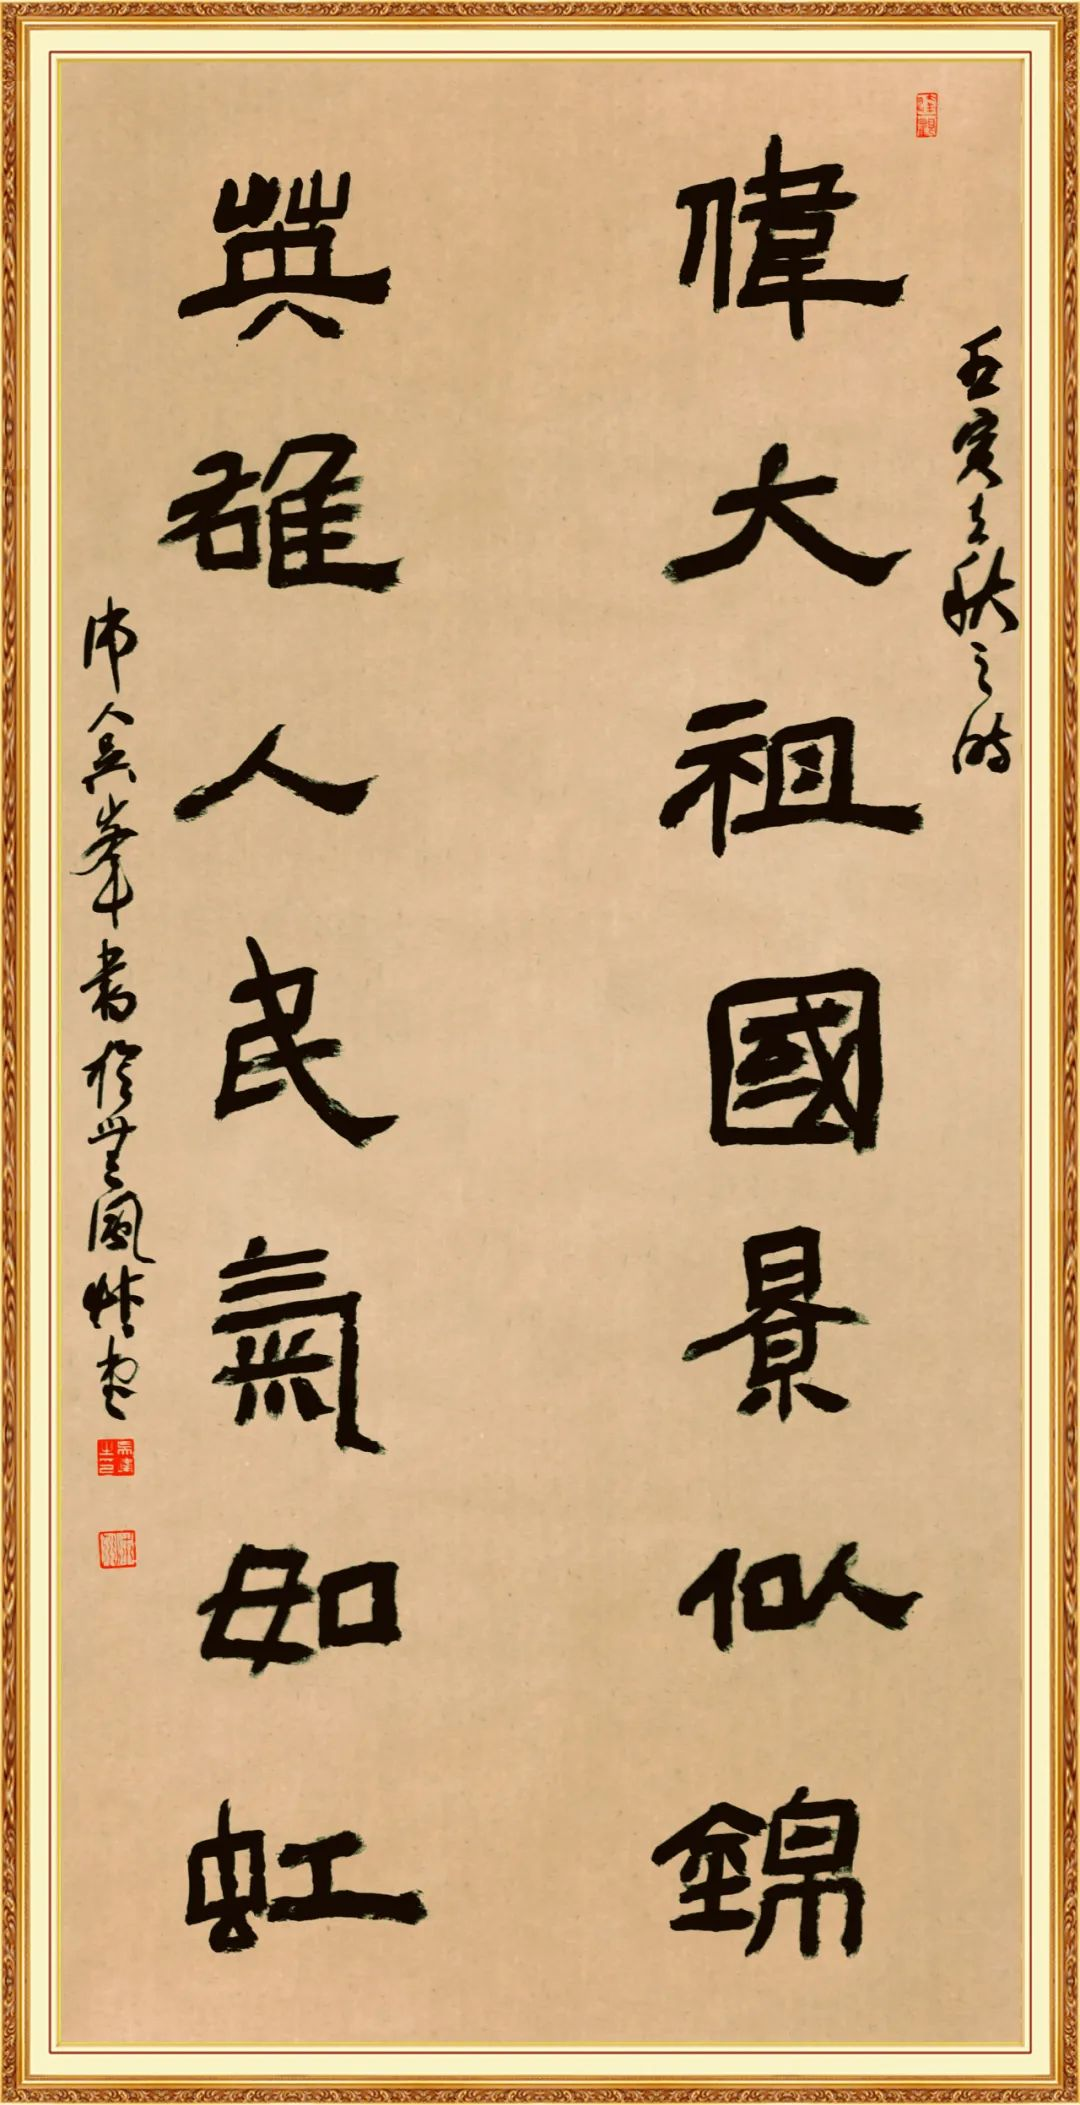 偉大祖國景似錦
壬寅立秋之時
英雄人民氣如虹
沛人吳峯書於無風草堂